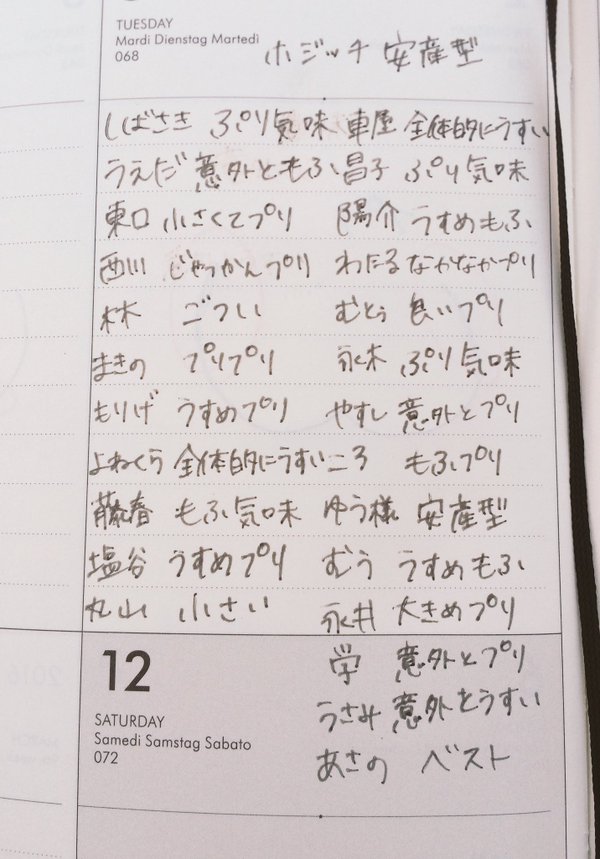 TUESDAY
Mardi Dienstag Martedì
068
ホジッチ 安産型
しばさき ぷり気味 車屋 全体的にうすい
うえだ 意外ともふ 昌子 ぷり気味
東口 小さくてプリ 陽介 うすめもふ
西川 じゃっかんプリ わたる なかなかプリ
林 ごつい むとう 良いプリ
まきの プリプリ 永木 ぷり気味
もりげ うすめプリ やすし 意外とプリ
よねくら 全体的にうすい ころ もふプリ
藤春 もふ気味 ゆう様 安産型
塩谷 うすめプリ むう うすめもふ
丸山 小さい 永井 大きめプリ
12
学 意外とプリ
SATURDAY
うさみ 意外とうすい
Samedi Samstag Sabato
072
あさの ベスト